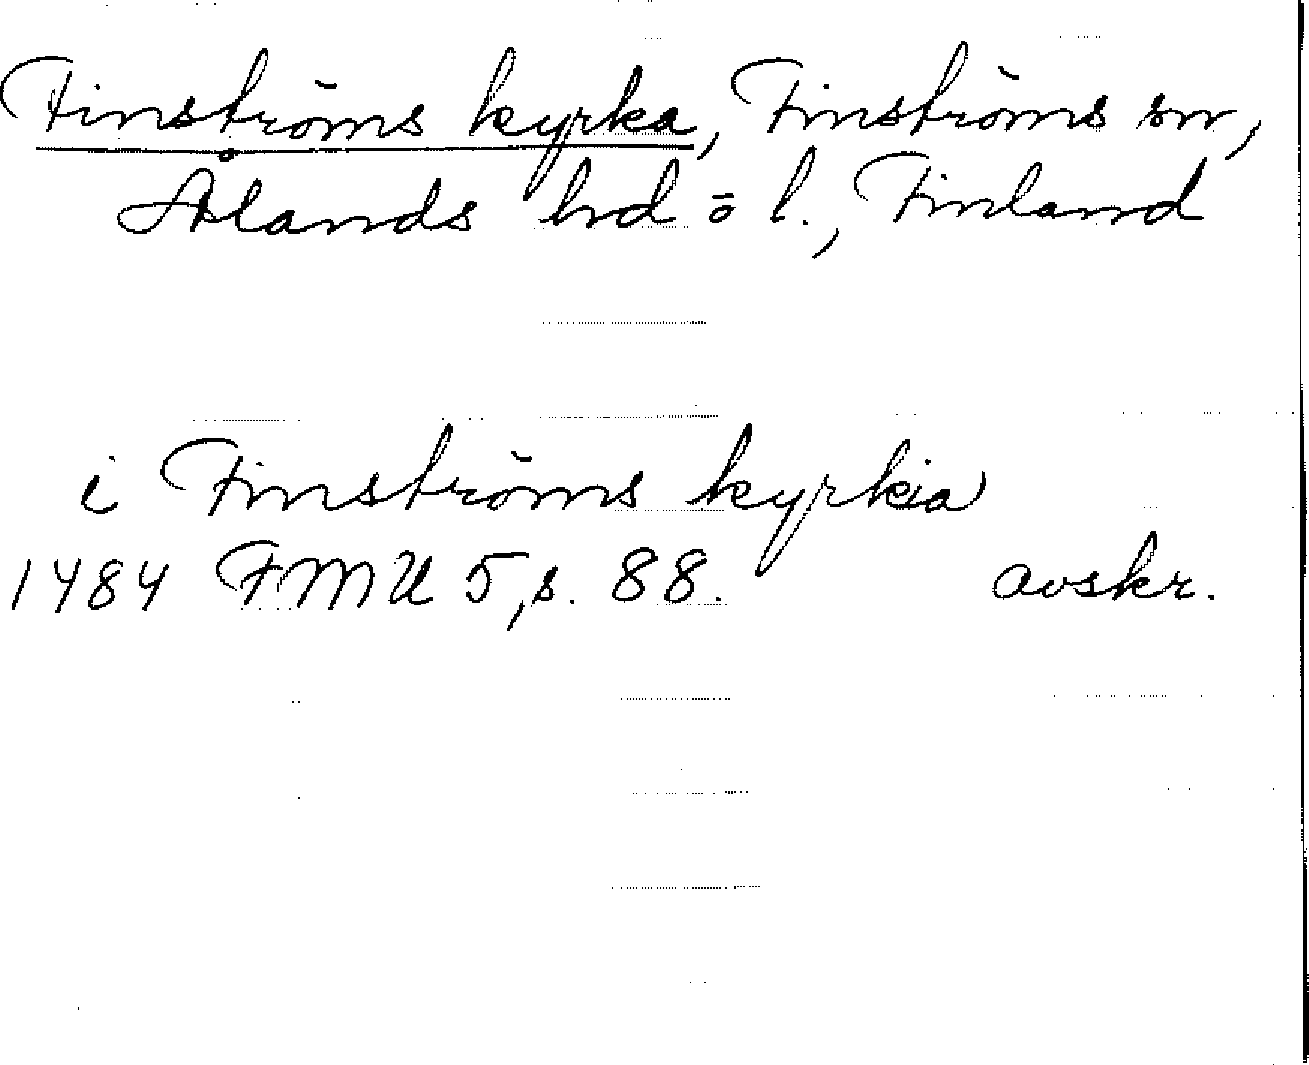 Finströms kyrka, Finströms sn,
Ålands hd o l., Finland
i Finströms kyrkia
1484 FMU 5, s. 88. avskr.